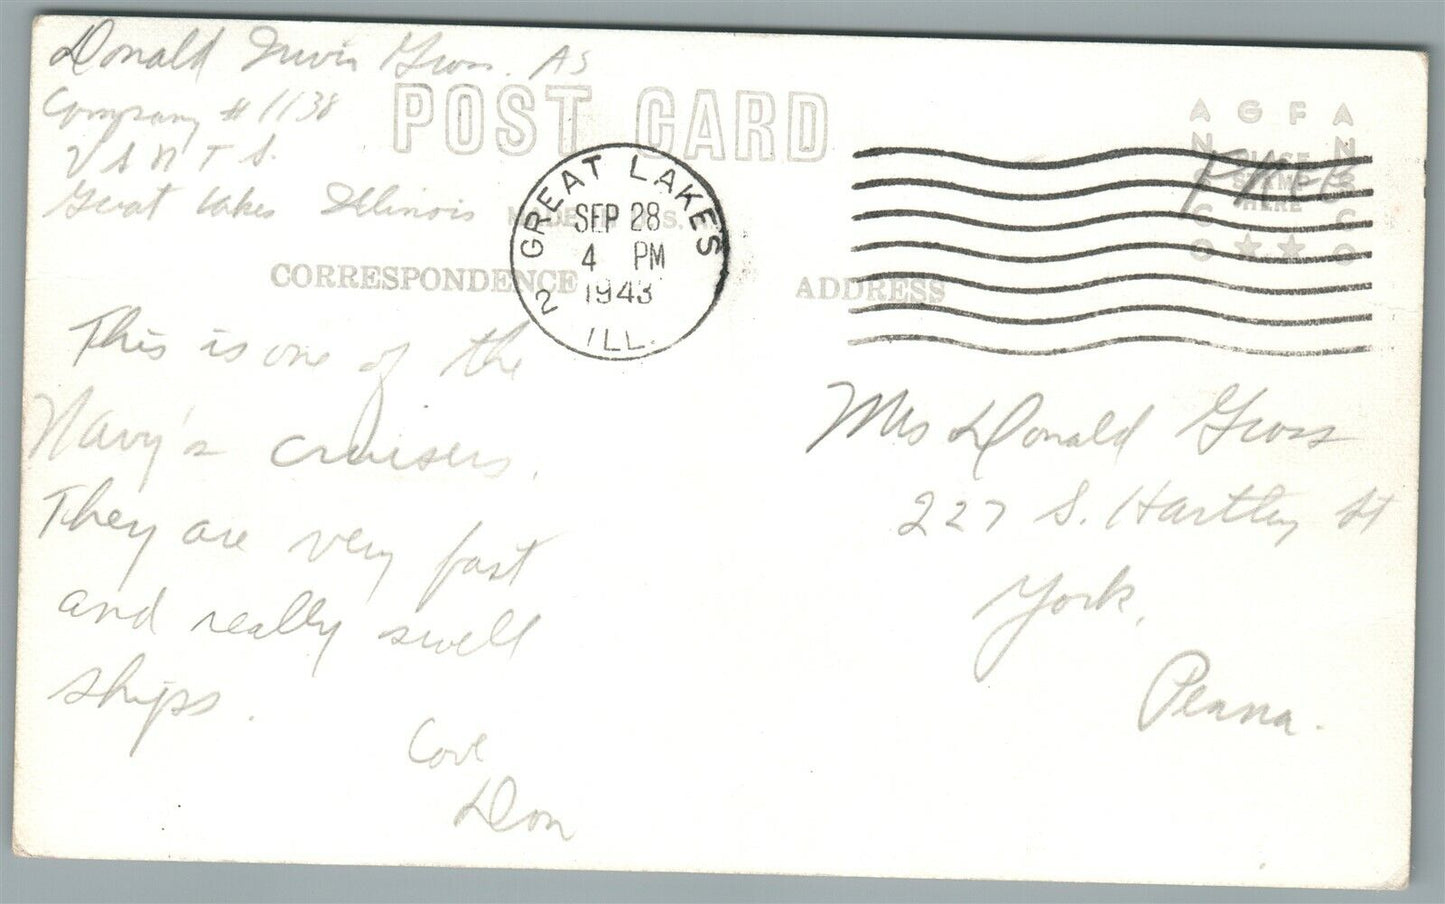 Donald Irvin Gross. AS
Company #1138
USNTS.
Great Lakes Illinois
POST CARD
MADE IN U.S.A.
CORRESPONDENCE
ADDRESS
GREAT LAKES
SEP 28
4 PM
1943
2
ILL.
AGFA
ANSCO
ANSCO
PLACE
STAMP
HERE
FREE
This is one of the
Navy's cruisers.
They are very fast
and really swell
ships.
Love
Don
Mrs Donald Gross
227 S. Hartley St
York,
Penna.